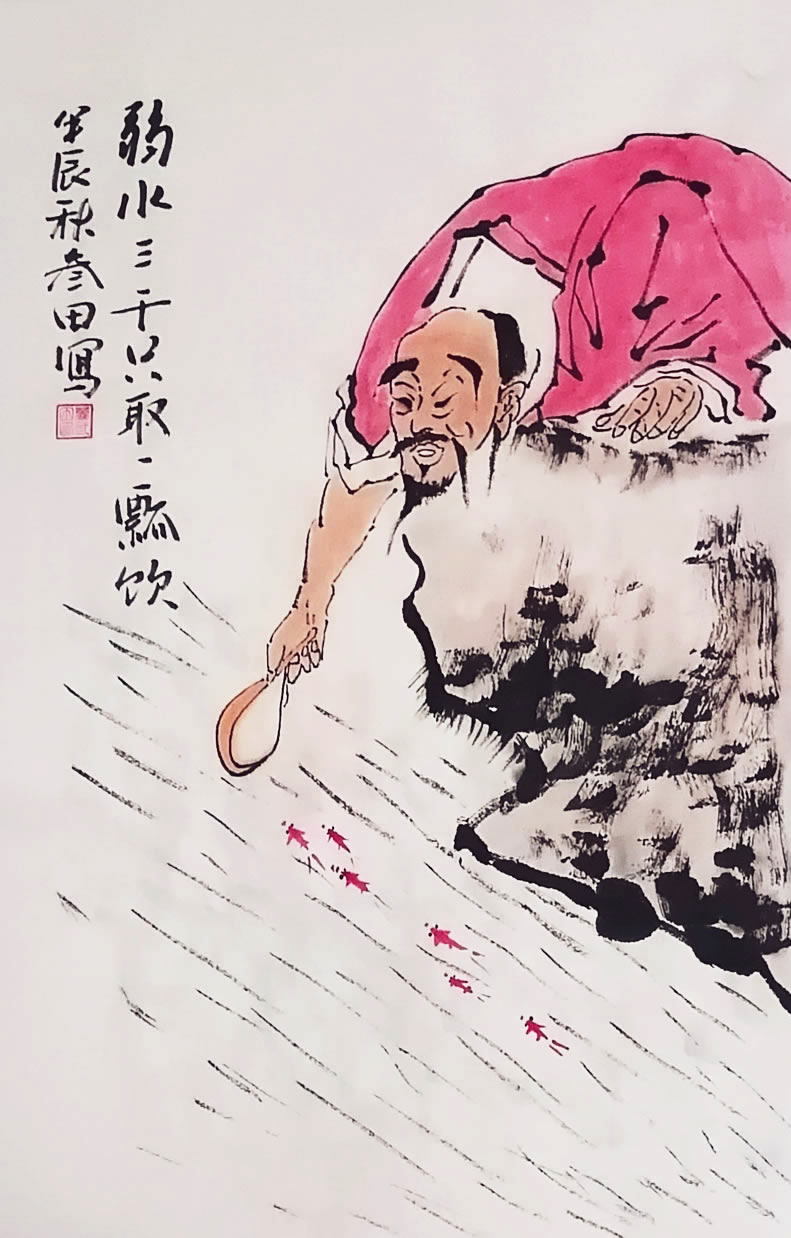 弱水三千只取一瓢饮
甲辰秋叁田写